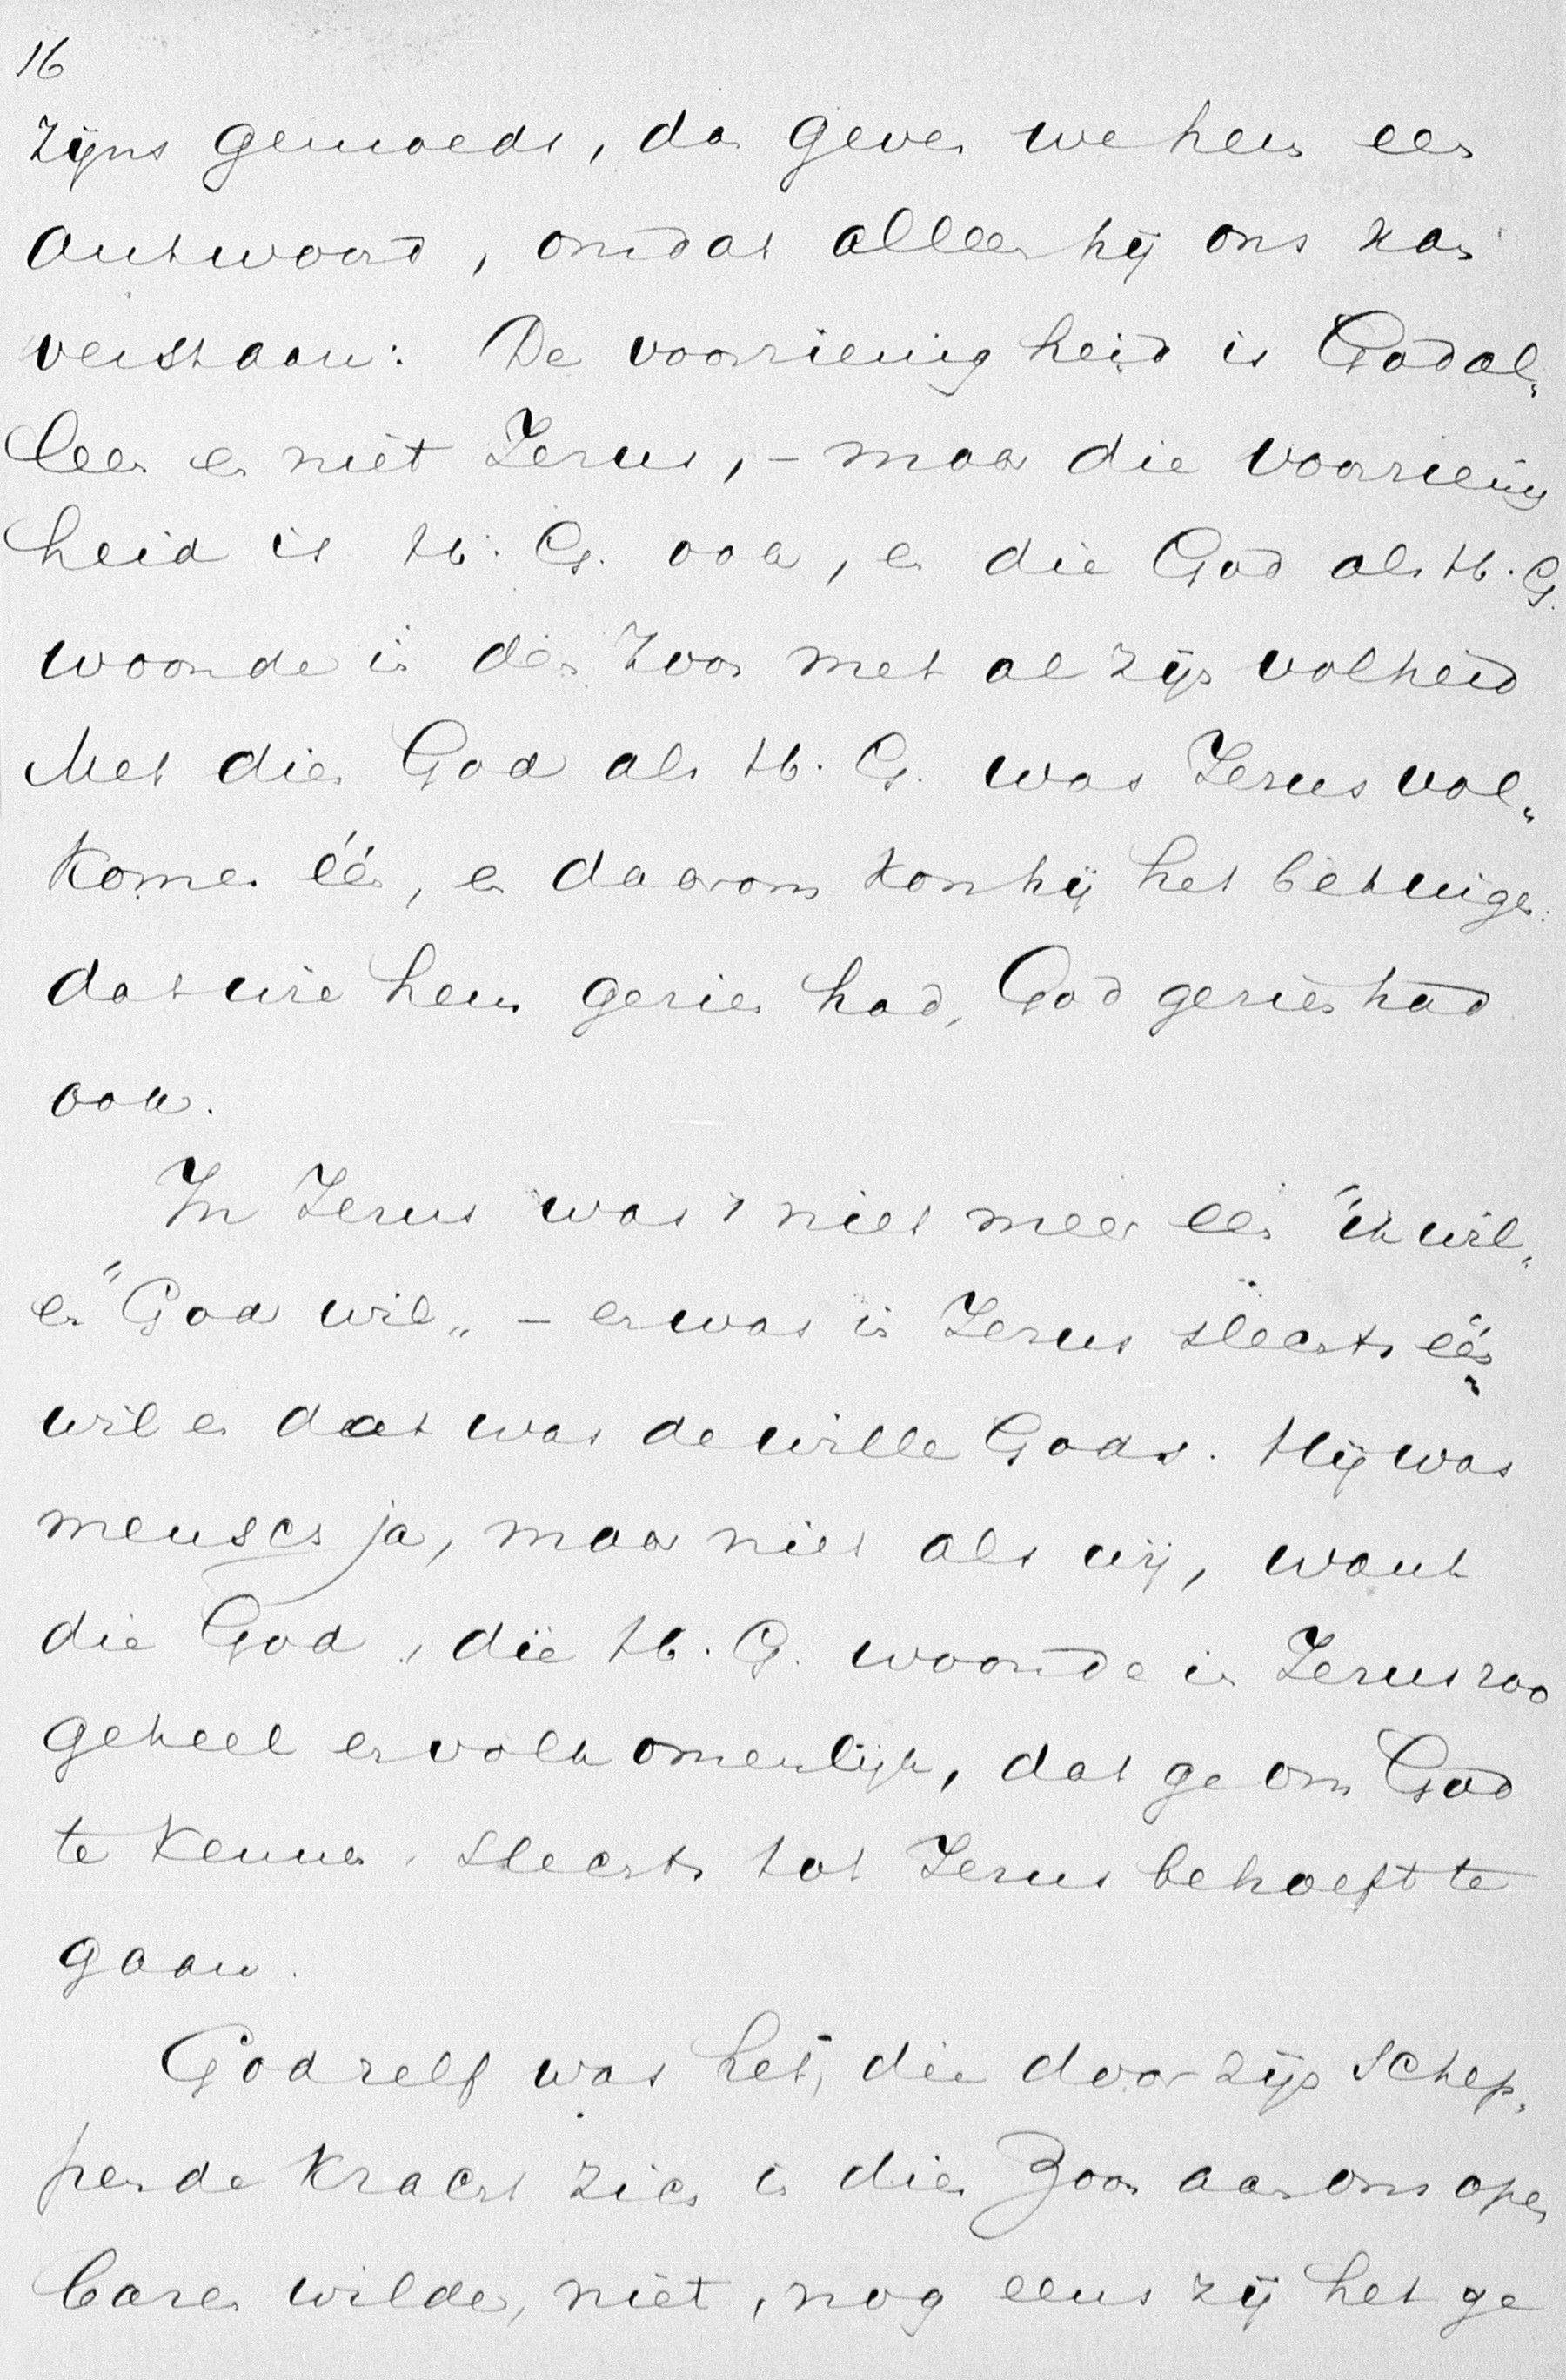 16
zijns gemoeds, dan geven we hem een
antwoord, omdat alleen hij ons kan
verstaan: De voorzienigheid is God al„
leen en niet Jezus, – maar die voorzienig
heid is H. G. ook, en die God als H. G.
woonde in den Zoon met al zijn volheid
Met dien God als H. G. was Jezus vol„
komen één, en daarom kon hij het betuigen:
dat wie hem gezien had, God gezien had
ook.
In Jezus was 't niet meer een "ik wil„
en "God wil„ – er was in Jezus slechts één
wil en dat was de wille Gods. Hij was
mensch ja, maar niet als wij, want
die God, die H. G. woonde in Jezus zoo
geheel en volkomenlijk, dat ge om God
te kennen, slechts tot Jezus behoeft te
gaan.
God zelf was het, die door zijn schep„
pende kracht zich in dien Zoon aan ons open
baren wilde, niet, nog eens zij het ge